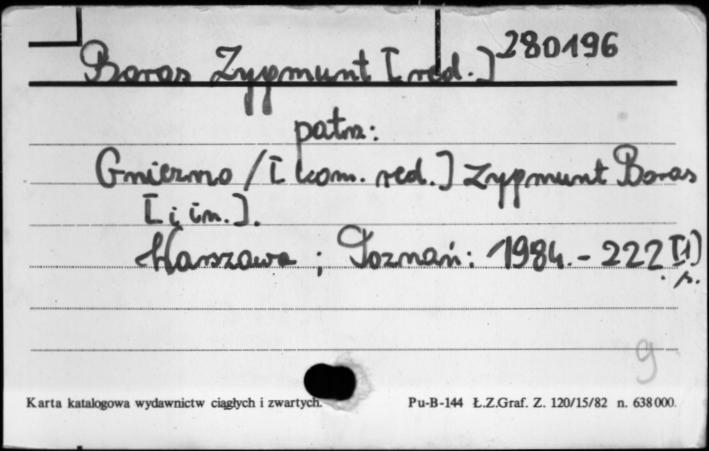 Boras Zygmunt [red.] 280196
patrz:
Gniezno / [kom. red.] Zygmunt Boras
[i in.].
Warszawa ; Poznań : 1984. - 222 [1]
s.
9
Karta katalogowa wydawnictw ciągłych i zwartych. Pu-B-144 Ł.Z.Graf. Z. 120/15/82 n. 638000.